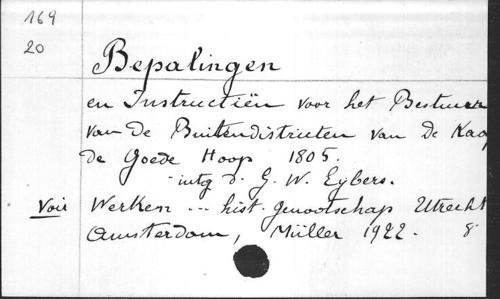 169
20
Bepalingen
en Instructiën voor het Bestuur
van de Buitendistricten van de Kaap
de Goede Hoop 1805.
uitg d. G. W. Eybers.
Voir Werken --- hist. genootschap Utrecht
Amsterdam, Müller 1922. 8°